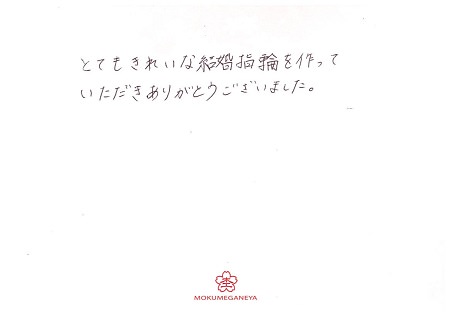 とてもきれいな結婚指輪を作って
いただきありがとうございました。
MOKUMEGANEYA